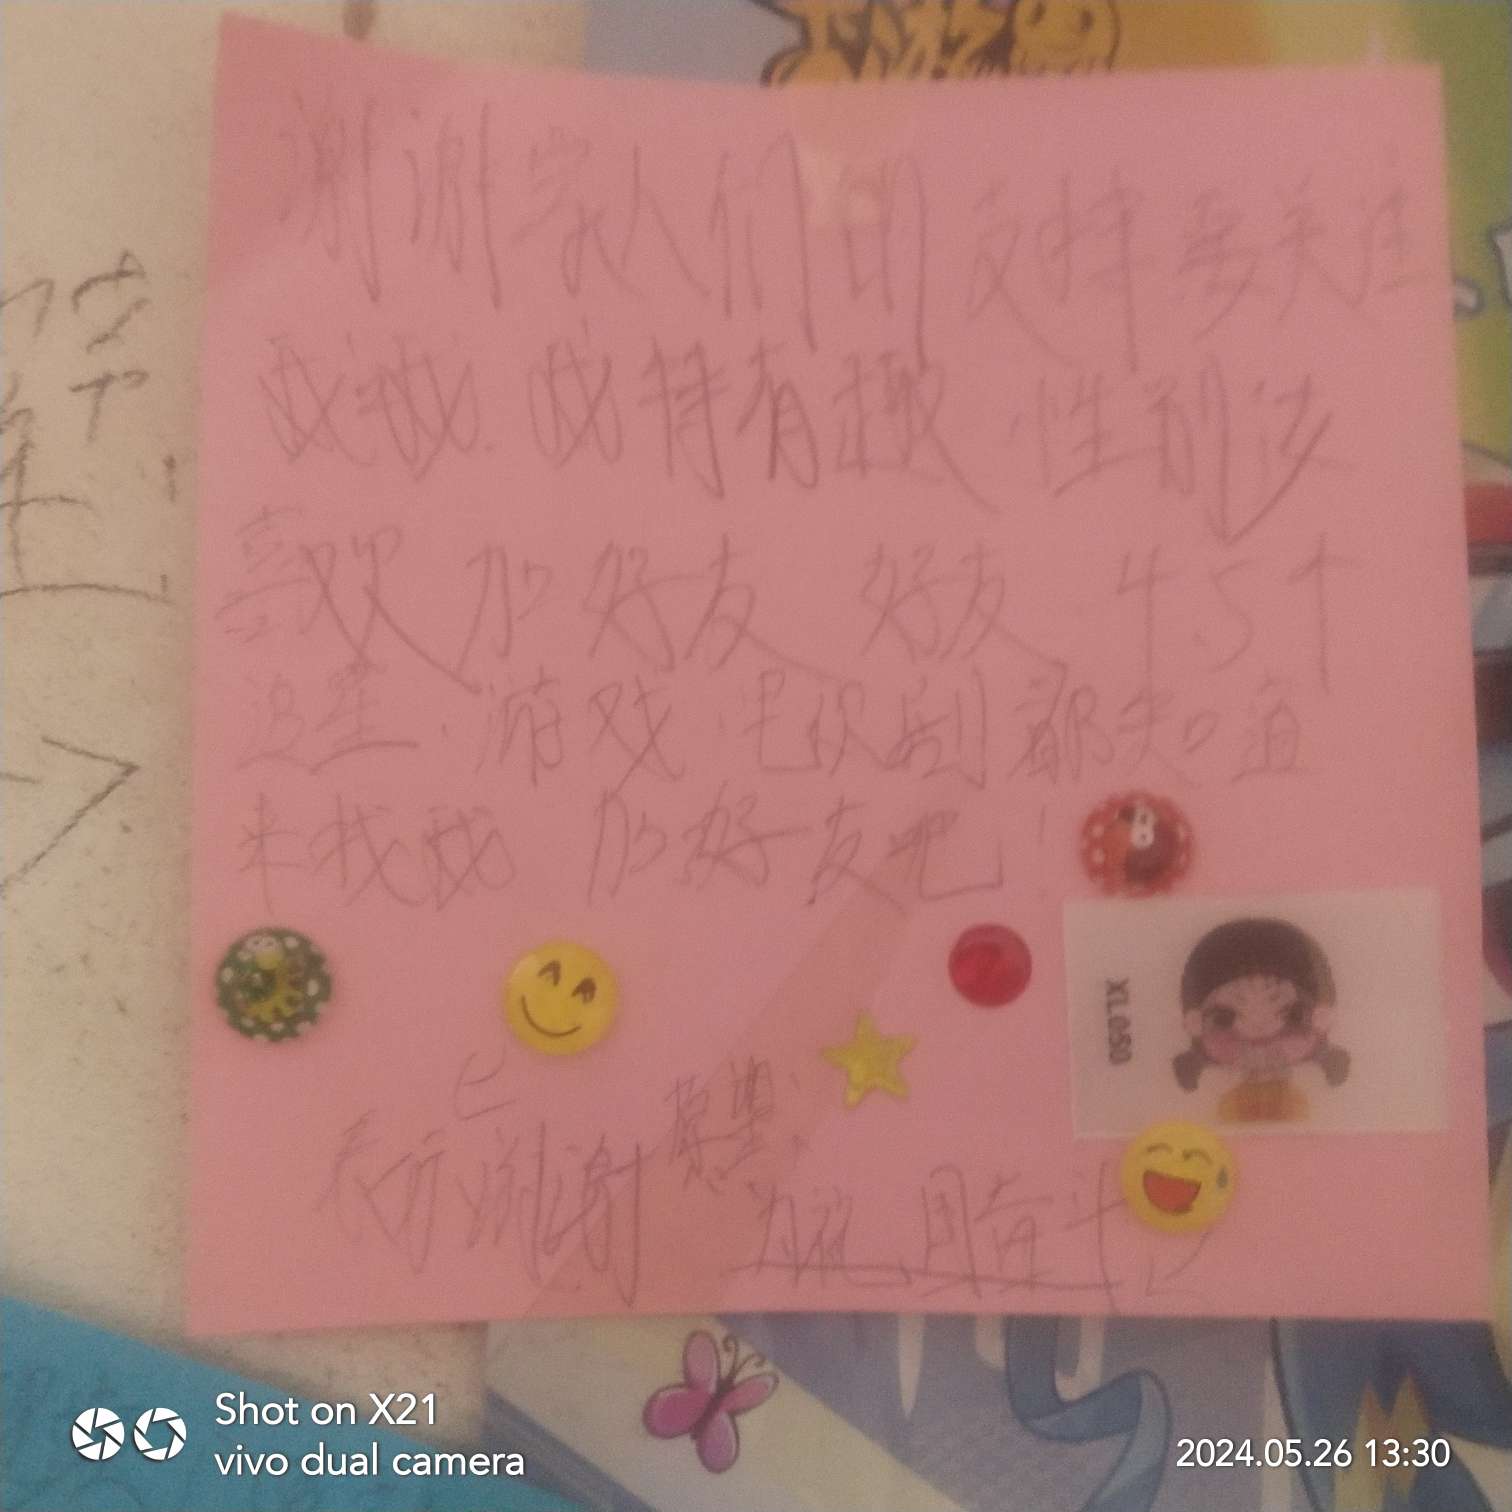 谢谢家人们的支持要关注
我哦.我特有趣.性别女
喜欢加好友 好友 4.5个
追星.游戏.电视剧都知道
来找我加好友吧!
XL050
表示谢谢
愿望:
为祖国奋斗
Shot on X21
vivo dual camera
2024.05.26 13:30